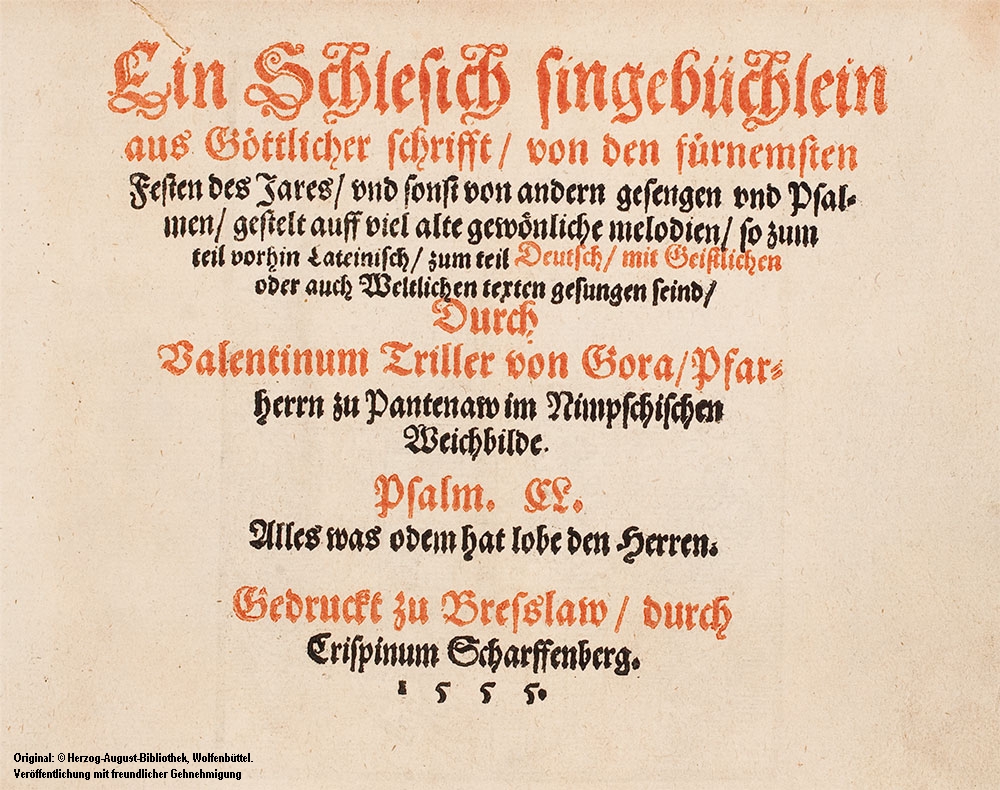 Ein Schlesich singebüchlein
aus Göttlicher schrifft / von den fürnemsten
Festen des Jares / vnd sonst von andern gesengen vnd Psal-
men / gestelt auff viel alte gewönliche melodien / so zum
teil vorhin Lateinisch / zum teil Deutsch / mit Geistlichen
oder auch Weltlichen texten gesungen seind /
Durch
Valentinum Triller von Gora / Pfar-
herrn zu Pantenaw im Nimpschischen
Weichbilde.
Psalm. CL.
Alles was odem hat lobe den Herren.
Gedruckt zu Bresslaw / durch
Crispinum Scharffenberg.
1555.
Original: © Herzog-August-Bibliothek, Wolfenbüttel.
Veröffentlichung mit freundlicher Gehnehmigung